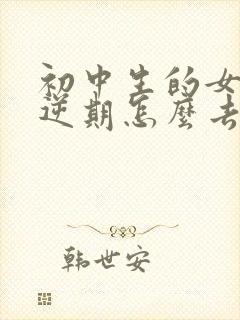 初中生的女
逆期怎麼去
韩世安